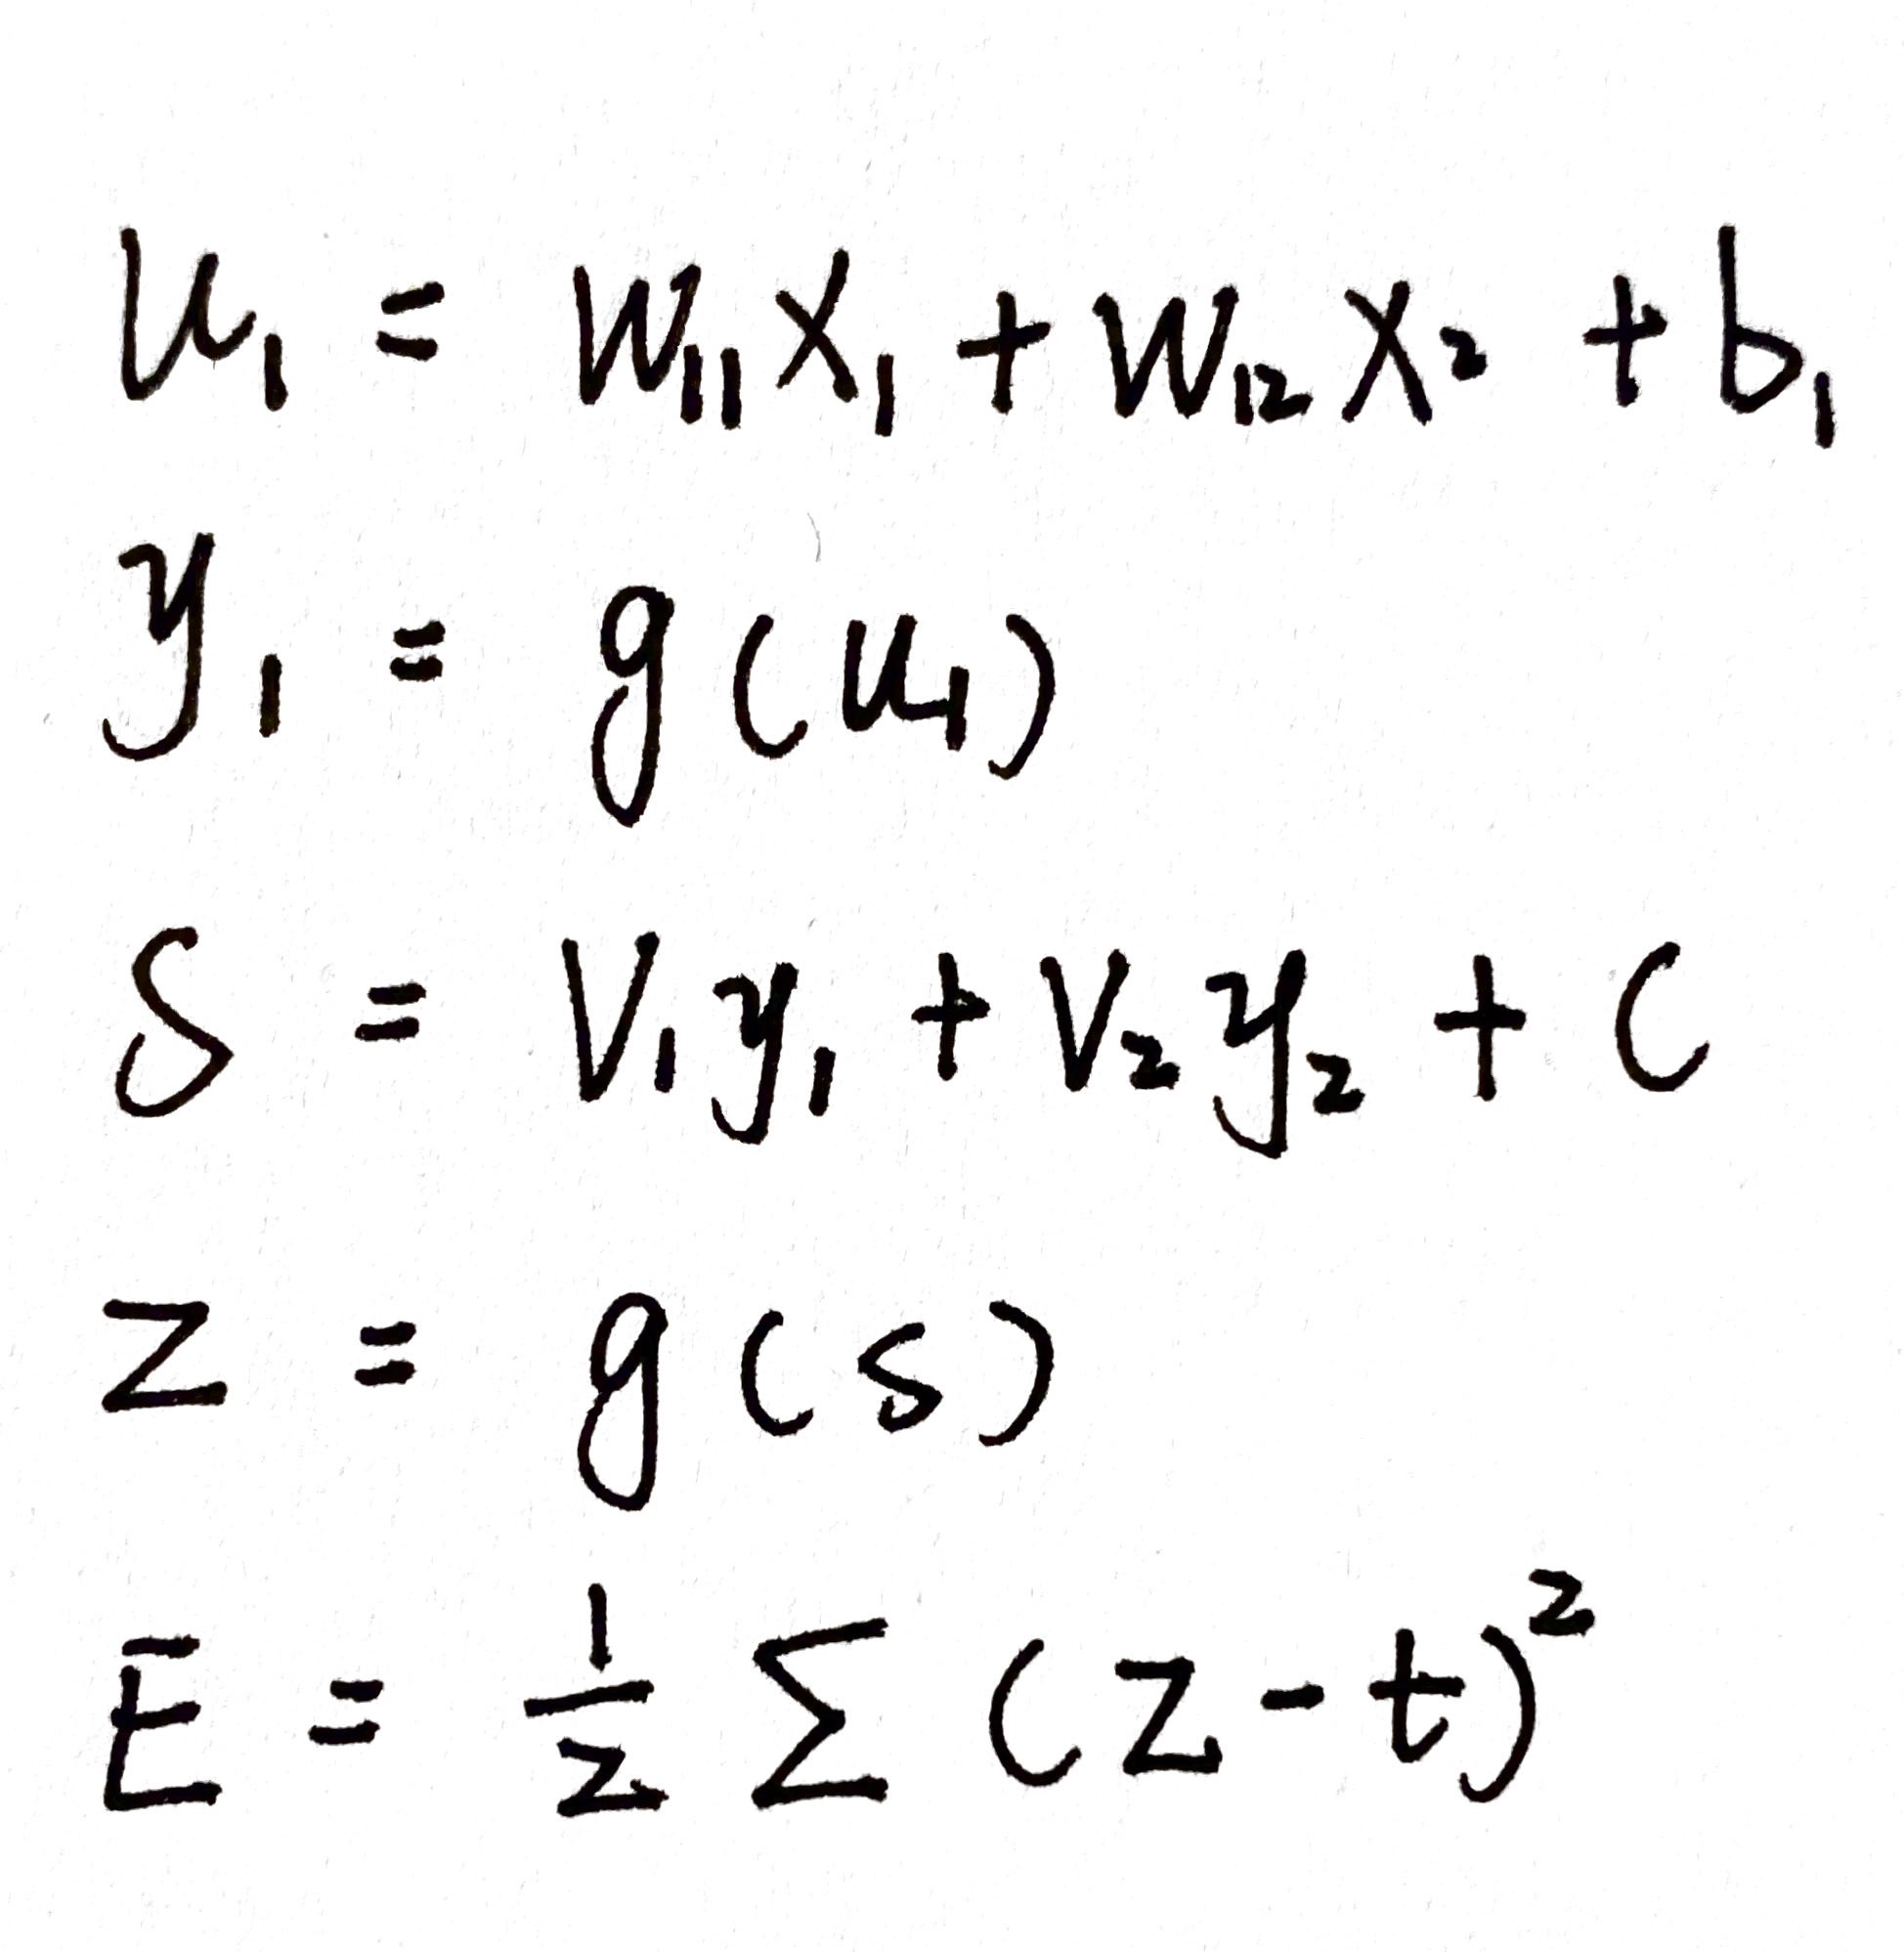 u₁ = w₁₁x₁ + w₁₂x₂ + b₁
y₁ = g(u₁)
s = v₁y₁ + v₂y₂ + c
z = g(s)
E = ½ Σ (z-t)²